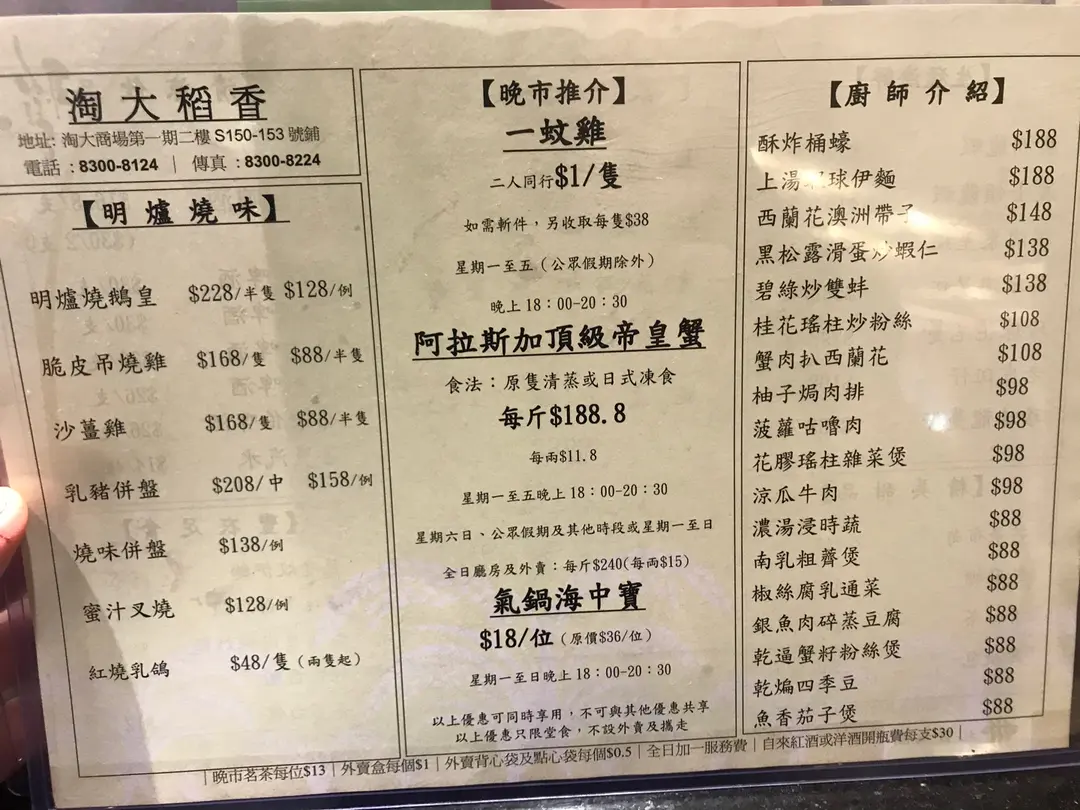 淘大稻香
地址: 淘大商場第一期二樓 S150-153 號鋪
電話 : 8300-8124 | 傳真 : 8300-8224
【明爐燒味】
明爐燒鵝皇 $228/半隻 $128/例
脆皮吊燒雞 $168/隻 $88/半隻
沙薑雞 $168/隻 $88/半隻
乳豬併盤 $208/中 $158/例
燒味併盤 $138/例
蜜汁叉燒 $128/例
紅燒乳鴿 $48/隻（兩隻起）
【晚市推介】
一蚊雞
二人同行$1/隻
如需斬件，另收取每隻$38
星期一至五（公眾假期除外）
晚上 18：00-20：30
阿拉斯加頂級帝皇蟹
食法：原隻清蒸或日式凍食
每斤$188.8
每兩$11.8
星期一至五晚上 18：00-20：30
星期六日、公眾假期及其他時段或星期一至日
全日廳房及外賣：每斤$240(每兩$15)
氣鍋海中寶
$18/位（原價$36/位）
星期一至日晚上 18：00-20：30
以上優惠可同時享用，不可與其他優惠共享
以上優惠只限堂食，不設外賣及攜走
【廚師介紹】
酥炸桶蠔 $188
上湯球伊麵 $188
西蘭花澳洲帶子 $148
黑松露滑蛋炒蝦仁 $138
碧綠炒雙蚌 $138
桂花瑤柱炒粉絲 $108
蟹肉扒西蘭花 $108
柚子焗肉排 $98
菠蘿咕嚕肉 $98
花膠瑤柱雜菜煲 $98
涼瓜牛肉 $98
濃湯浸時蔬 $88
南乳粗薺煲 $88
椒絲腐乳通菜 $88
銀魚肉碎蒸豆腐 $88
乾逼蟹籽粉絲煲 $88
乾煸四季豆 $88
魚香茄子煲 $88
| 晚市茗茶每位$13 | 外賣盒每個$1 | 外賣背心袋及點心袋每個$0.5 | 全日加一服務費 | 自來紅酒或洋酒開瓶費每支$30 |